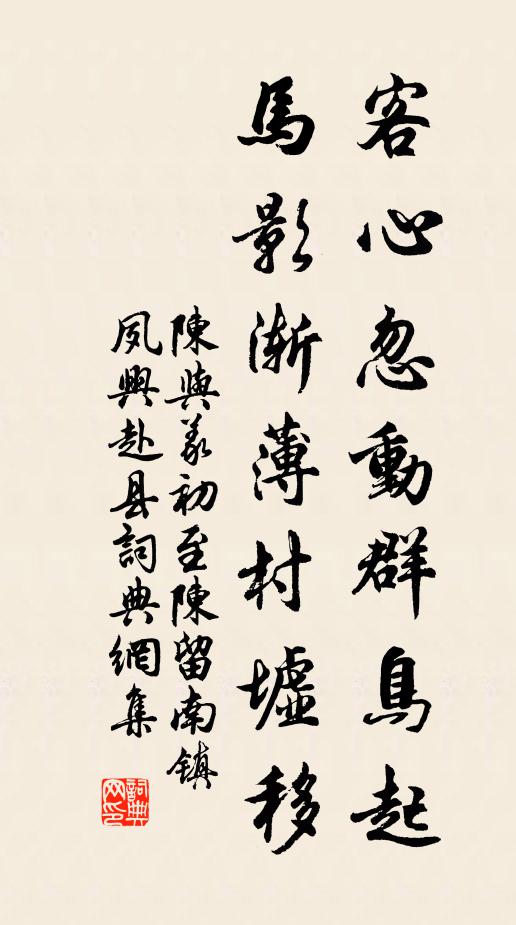 客心忽動群鳥起
馬影漸薄村墟移
陳與義初至陳留南鎮
夙興赴县詞典網集
詞典
网印